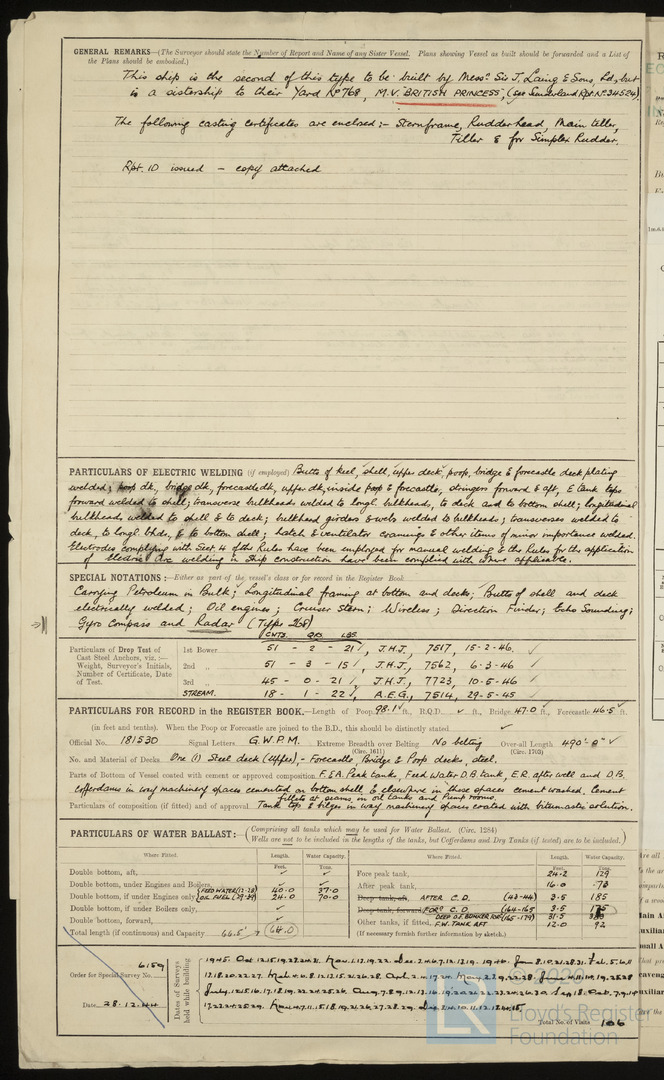 GENERAL REMARKS—(The Surveyor should state the Number of Report and Name of any Sister Vessel. Plans showing Vessel as built should be forwarded and a List of
the Plans should be embodied.)
This ship is the second of this type to be built by Messrs Sir J. Laing & Sons, Ld, but
is a sistership to their Yard No 768, M.V. "BRITISH PRINCESS" (see Sunderland Rpt. No. 34524).
The following casting certificates are enclosed:- Sternframe, Rudderhead, Main tiller,
Tiller & for Simplex Rudder.
Rpt. 10 issued - copy attached
PARTICULARS OF ELECTRIC WELDING (if employed) Butts of keel, shell, upper deck, poop, bridge & forecastle deck plating
welded; poop dk, bridge dk, forecastle dk, upper dk, inside poop & forecastle, stringers forward & aft, E tank tops
forward welded to shell; transverse bulkheads welded to longl bulkheads, to deck and to bottom shell; longitudinal
bulkheads welded to shell & to deck; bulkhead girders & webs welded to bulkheads; transverses welded to
deck, to longl bhds, & to bottom shell; hatch & ventilator coamings & other items of minor importance welded.
Electrodes complying with Sect. 4 of the Rules have been employed for manual welding & the Rules for the application
of Electric Arc welding in ship construction have been complied with where applicable.
SPECIAL NOTATIONS:—Either as part of the vessel's class or for record in the Register Book
Carrying Petroleum in Bulk; Longitudinal framing at bottom and decks; Butts of shell and deck
electrically welded; Oil engines; Cruiser Stern; Wireless; Direction Finder; Echo Sounding;
Gyro Compass and Radar (Type 268)
CWTS. QRS LBS.
Particulars of Drop Test of
Cast Steel Anchors, viz.:—
Weight, Surveyor's Initials,
Number of Certificate, Date
of Test.
1st Bower 51 - 2 - 21, J.H.J., 7517, 15-2-46.
2nd " 51 - 3 - 15, J.H.J., 7562, 6-3-46
3rd " 45 - 0 - 21, J.H.J., 7723, 10-5-46
STREAM. 18 - 1 - 22, A.E.G., 7514, 29-5-45
PARTICULARS FOR RECORD in the REGISTER BOOK.—Length of Poop 98.1 ft., R.Q.D. ft., Bridge 47.0 ft., Forecastle 46.5 ft.
(in feet and tenths). When the Poop or Forecastle are joined to the B.D., this should be distinctly stated
Official No. 181530 Signal Letters G.W.P.M. Extreme Breadth over Belting No belting Over-all Length 490'-0"
(Circ. 1611) (Circ. 1703)
No. and Material of Decks One (1) Steel deck (Upper), - Forecastle, Bridge & Poop decks, steel.
Parts of Bottom of Vessel coated with cement or approved composition F.&A. Peak tanks, Feed Water D.B. tank, E.R. after well and D.B.
cofferdams in way machinery spaces cemented on bottom shell & elsewhere in those spaces cement washed. Cement
fillets at seams in oil tanks and Pump rooms
Particulars of composition (if fitted) and of approval Tank tops & bilges in way machinery spaces coated with bitumastic solution.
PARTICULARS OF WATER BALLAST:—(Comprising all tanks which may be used for Water Ballast. (Circ. 1284)
Wells are not to be included in the lengths of the tanks, but Cofferdams and Dry Tanks (if tested) are to be included.)
Where Fitted. Length. Water Capacity. Where Fitted. Length. Water Capacity.
Feet. Tons. Feet. Tons.
Double bottom, aft,
Double bottom, under Engines and Boilers,
Double bottom, if under Engines only, FEED WATER (12-28) 40.0 37.0
OIL FUEL (29-39) 24.0 70.0
Double bottom, if under Boilers only,
Double bottom, forward,
Total length (if continuous) and Capacity 66.5' 64.0
Fore peak tank, 24.2 129
After peak tank, 16.0 73
Deep tank, aft, AFTER C.D. (43-44) 3.5 185
Deep tank, forward, FORD C.D. (164-165) 3.5 175
DEEP OF BUNKER FOR (165-179) 31.5
Other tanks, if fitted, F.W. TANK AFT 12.0 92
(If necessary furnish further information by sketch).
6159
Order for Special Survey No.
Date 28.12.44
Dates of Surveys held while building
Total No. of Visits 106
© 2020
Lloyd's Register
Foundation